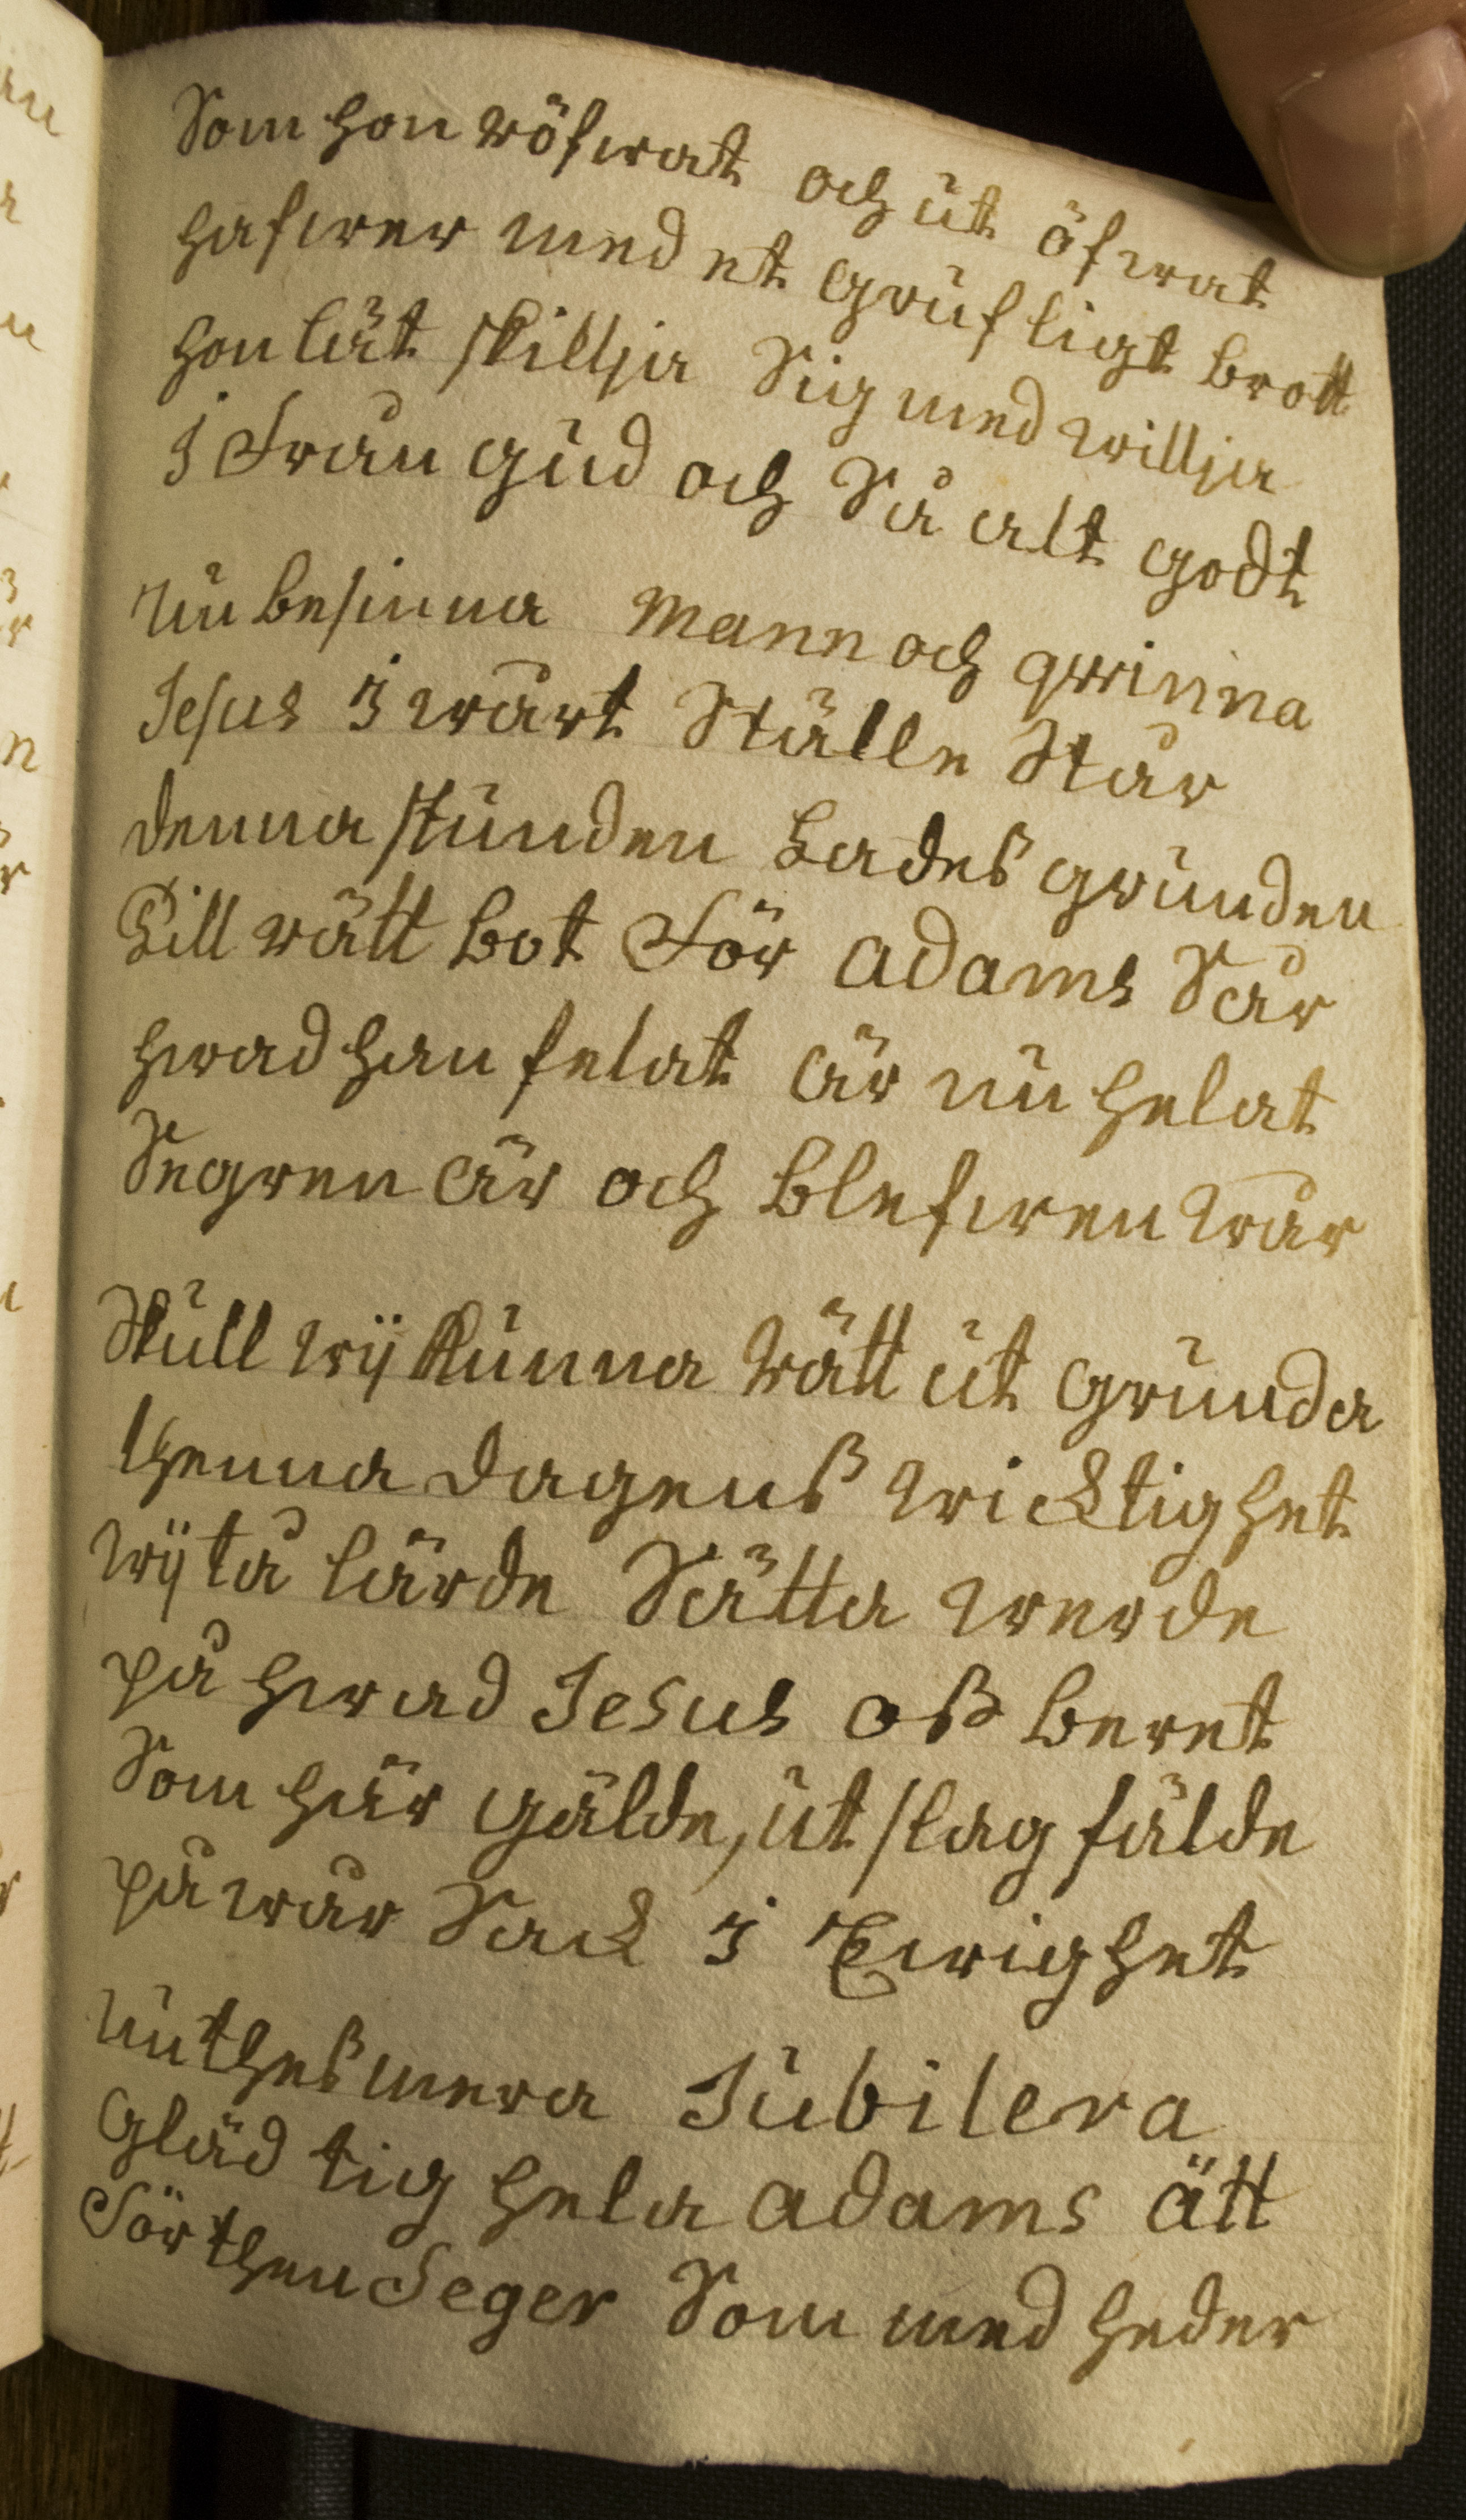 Som hon röfwat och ut öfwat
hafwer med et grufligt brott
hon lät skillja Sig med willja
i Från gud och Så alt godt
nu besinna Mann och qwinna
Jesus i wårt Ställe Står
denna stunden Lades grunden
Till rätt bot För adams Sår
hwad han felat är nu helat
Segren är och blefwen wår
Skull wij kunna rätt ut grunda
thenna dagens wicktighet
wij tå lärde Sätta werde
på hwad Jesus oß beret
Som här gälde, utslag fälde
på wår Sack i Ewighet
nu thes mera Jubilera
Gläd tig hela adams ätt
För then Seger Som med heder